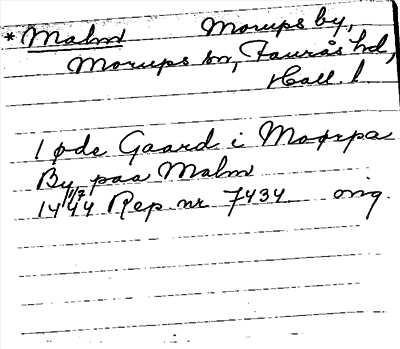 * Malm Morups by,
Morups sn, Faurås hd,
Hall. l
1 øde Gaard i Moørpa
By paa Malm
14 1/7 44 Rep. nr 7434 orig.